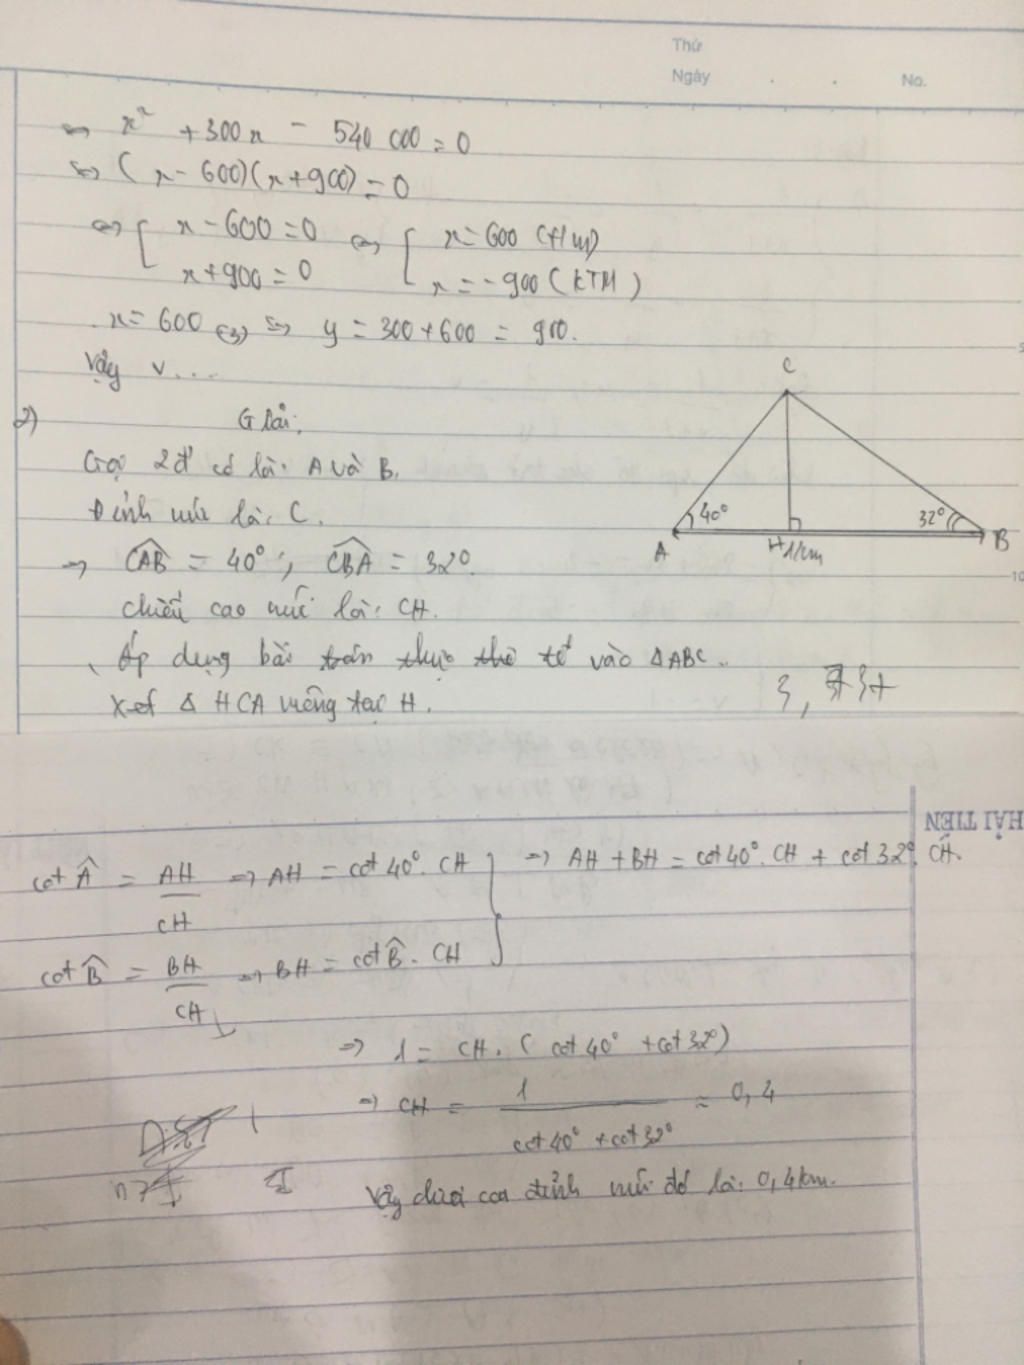 Thứ
Ngày . . No.
⇔ x² + 300x - 540 000 = 0
⇔ (x - 600)(x + 900) = 0
⇔ [ x - 600 = 0 ⇔ [ x = 600 (t/m)
x + 900 = 0 x = -900 (KTM)
x = 600 (3) ⇒ y = 300 + 600 = 900.
Vậy v...
2)
Giải:
Gọi 2 đ có là: A và B.
Đỉnh núi là: C.
⇒ CAB = 40°; CBA = 32°.
chiều cao núi là: CH.
Áp dụng bài toán thực tế vào ΔABC.
Xét Δ HCA vuông tại H.
C
40°
32°
A
H
1km
B
5
10
HẢI TIẾN
cot Â = AH/CH ⇒ AH = cot 40°. CH } ⇒ AH + BH = cot 40°. CH + cot 32°. CH.
cot B̂ = BH/CH ⇒ BH = cot B̂. CH
⇒ 1 = CH. (cot 40° + cot 32°)
⇒ CH = 1/(cot 40° + cot 32°) ≈ 0,4
Vậy chiều cao đỉnh núi đó là: 0,4km.